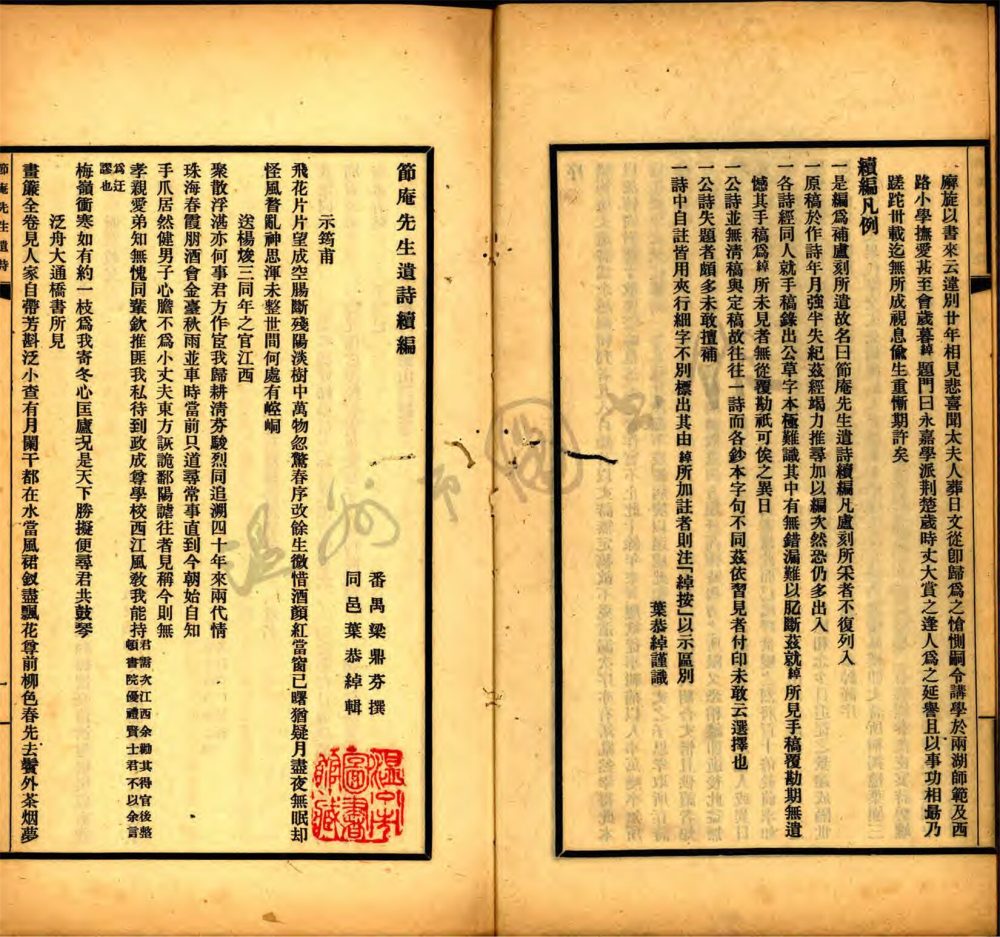 麾旌以書來云違別廿年相見悲喜聞太夫人葬日文從卽歸爲之愴惻嗣令講學於兩湖師範及西
路小學撫愛甚至會歲暮綽題門曰永嘉學派荆楚歲時丈大賞之逢人爲之延譽且以事功相勗乃
蹉跎卅載迄無所成視息偸生重慚期許矣
續編凡例
一是編爲補盧刻所遺故名曰節庵先生遺詩續編凡盧刻所采者不復列入
一原稿於作詩年月強半失紀茲經竭力推尋加以編次然恐仍多出入
一各詩經同人就手稿錄出公草字本極難識其中有無錯漏難以肊斷茲就綽所見手稿覆勘期無遺
憾其手稿爲綽所未見者無從覆勘祇可俟之異日
一公詩並無清稿與定稿故往往一詩而各鈔本字句不同茲依習見者付印未敢云選擇也
一公詩失題者頗多未敢擅補
一詩中自註皆用夾行細字不別標出其由綽所加註者則注「綽按」以示區別
葉恭綽謹識
節庵先生遺詩續編
番禺梁鼎芬撰
同邑葉恭綽輯
示筠甫
飛花片片望成空腸斷殘陽淡樹中萬物忽驚春序改餘生微惜酒顏紅當窗已曙猶疑月盡夜無眠却
怪風瞀亂神思渾未整世間何處有崆峒
送楊㷀三同年之官江西
聚散浮湛亦何事君方作宦我歸耕淸芬駿烈同追溯四十年來兩代情
珠海春霞朋酒會金臺秋雨並車時當前只道尋常事直到今朝始自知
手爪居然健男子心膽不爲小丈夫東方詼詭鄱陽謔往者見稱今則無
孝親愛弟知無愧同輩欽推匪我私待到政成尊學校西江風敎我能持
君需次江西余勸其得官後整
頓書院優禮賢士君不以余言
爲迂
謬也
梅嶺衝寒如有約一枝爲我寄冬心匡廬況是天下勝擬便尋君共鼓琴
泛舟大通橋書所見
畫簾全卷見人家自帶芳斟泛小查有月闌干都在水當風裙釵盡飄花尊前柳色春先去鬢外茶烟夢
節庵先生遺詩
溫州市圖書館藏
溫州市圖